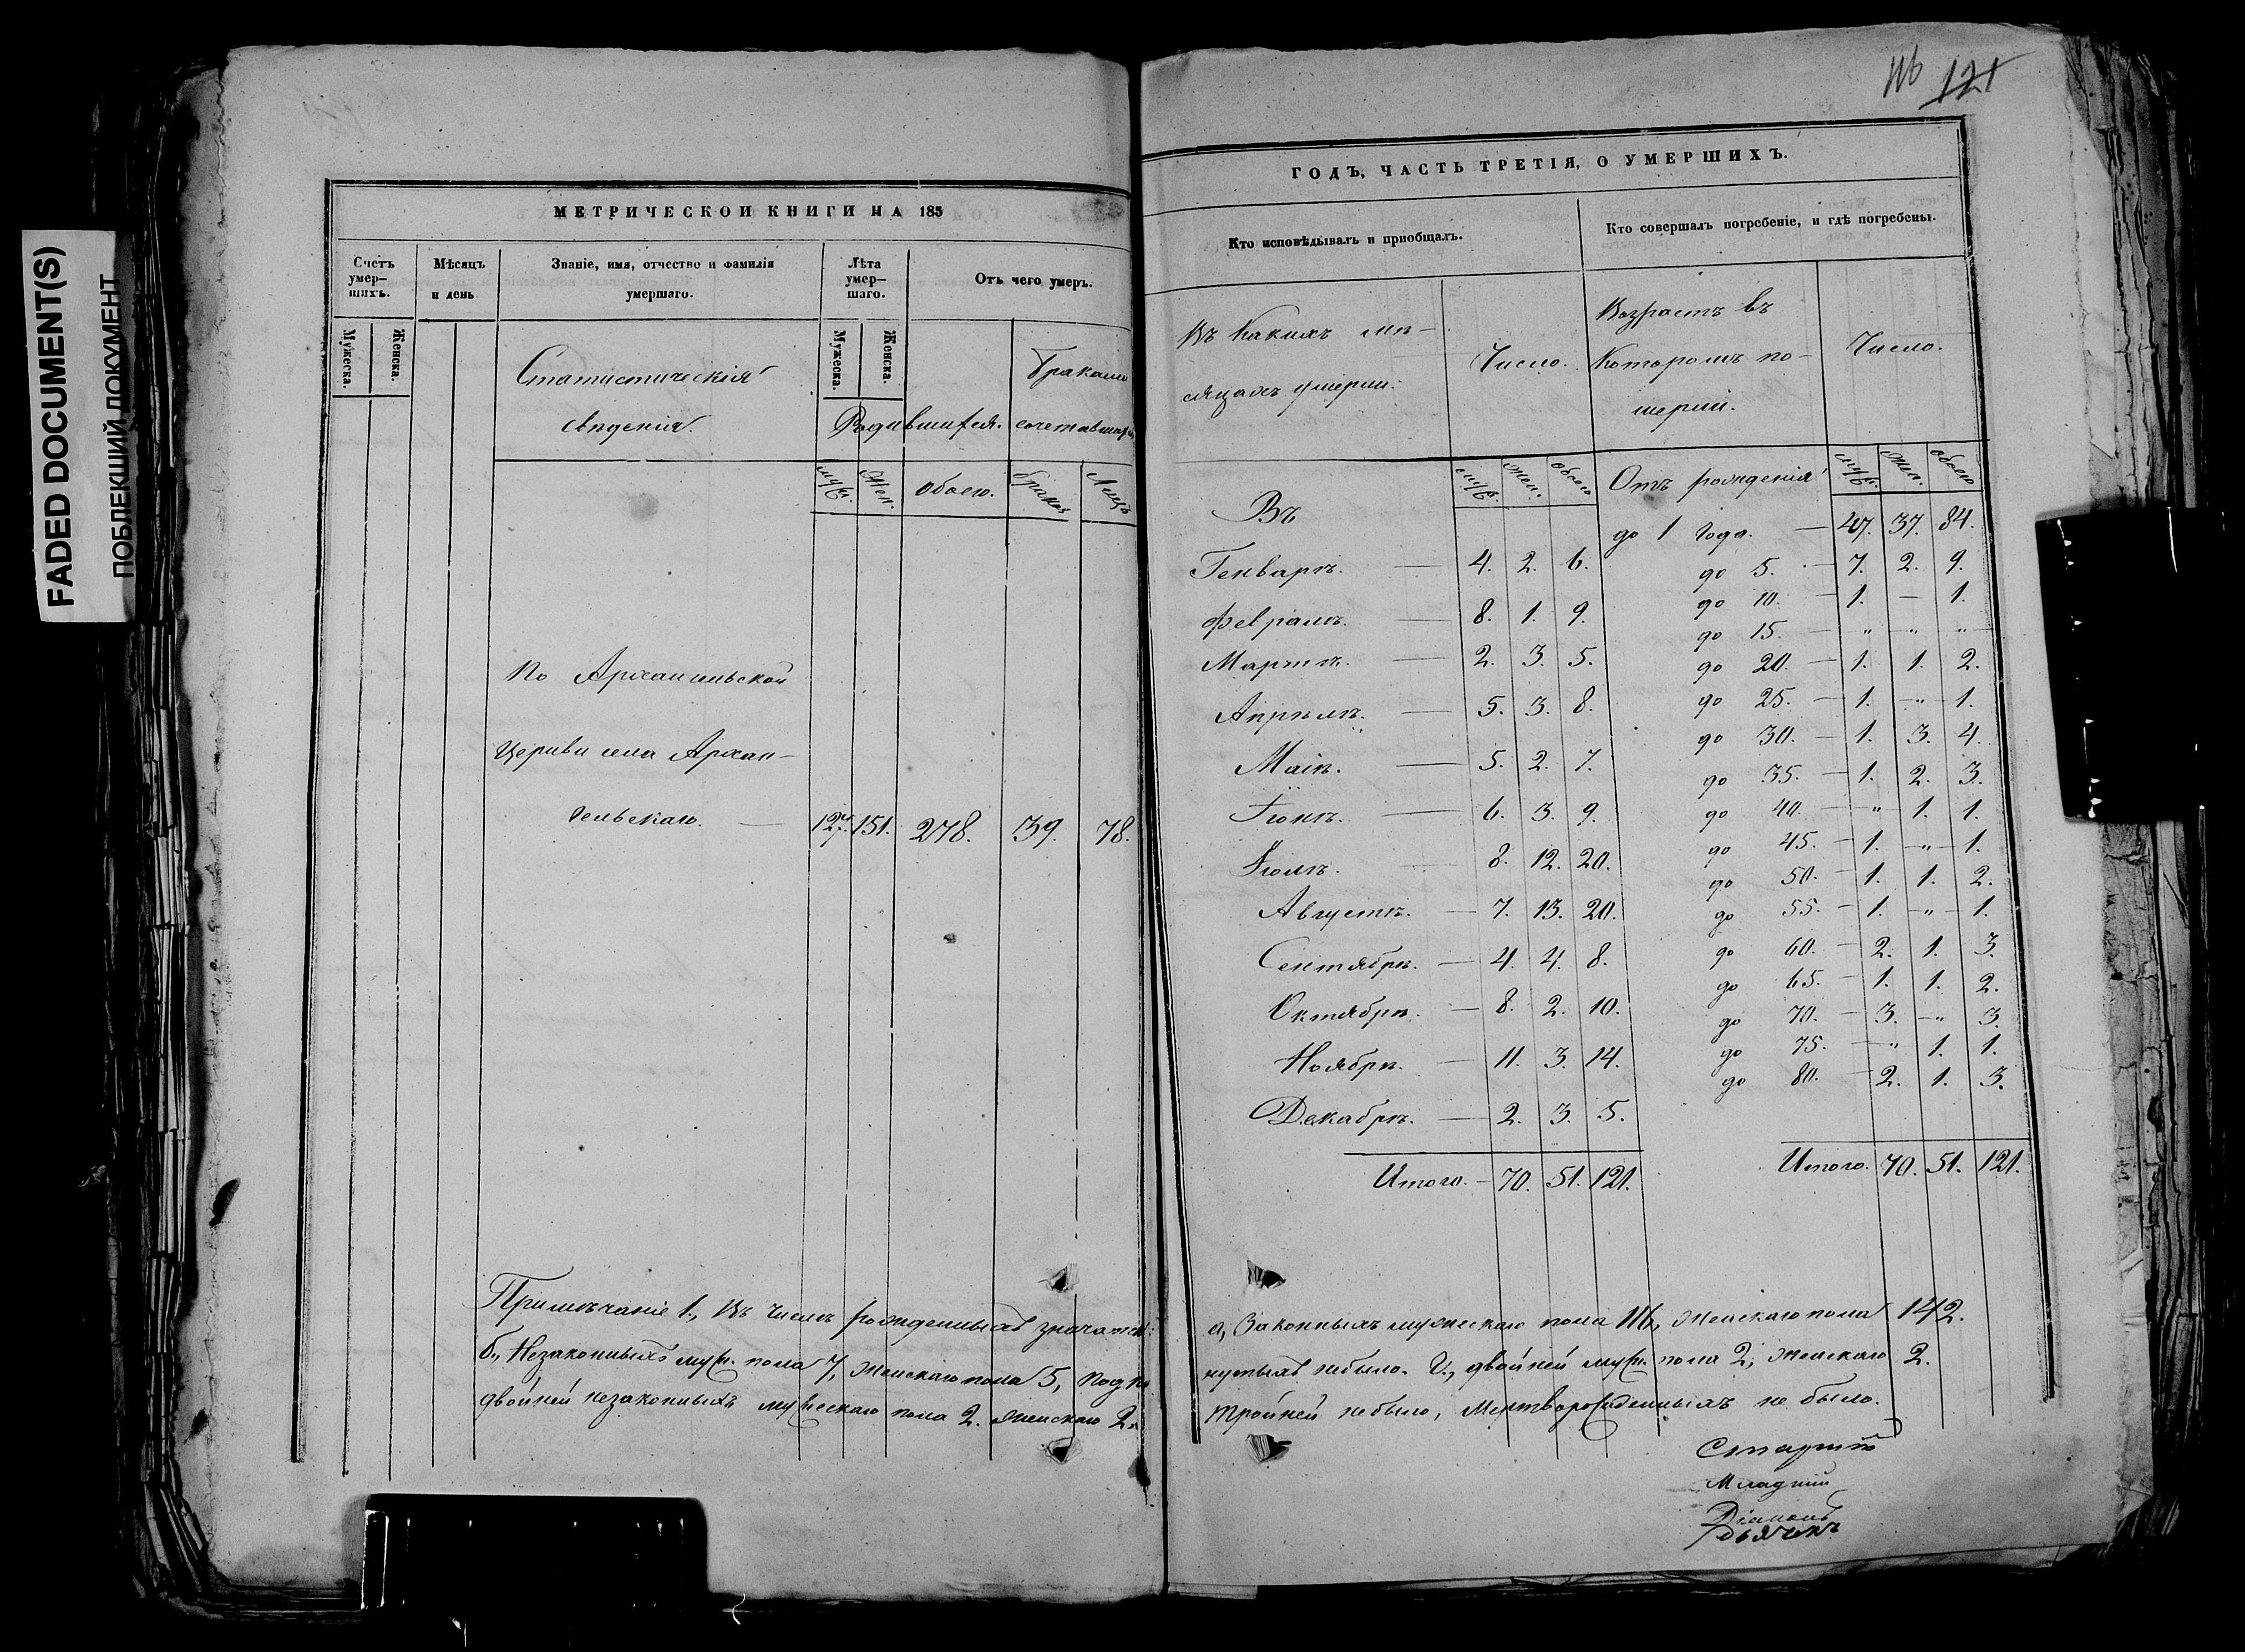 FADED DOCUMENT(S)
ПОБЛЕКШИЙ ДОКУМЕНТ
МЕТРИЧЕСКОЙ КНИГИ НА 185
Счетъ умер-шихъ.
Мужеска.
Женска.
Мѣсяцъ и день
Званіе, имя, отчество и фамилія умершаго.
Лѣта умер-шаго.
Мужеска.
Женска.
Отъ чего умеръ.
Статистическія
свѣденія.
Родившихся.
Бракомъ
сочетавшихся
муж. жен. обоего. Браков Лицъ
По Архангельской
Церкви села Архан-
гельскаго. — 127. 151. 278. 39. 78.
Примѣчаніе 1., Въ числѣ рожденныхъ значатся:
б., Незаконныхъ муж. пола 7, женскаго пола 5, подки
двойней незаконныхъ мужескаго пола 2. женскаго 2.
116 121
ГОДЪ, ЧАСТЬ ТРЕТІЯ, О УМЕРШИХЪ.
Кто исповѣдывалъ и пріобщалъ.
Кто совершалъ погребеніе, и гдѣ погребены.
Въ какихъ мѣ-
сяцахъ умерли:
Число.
Возрастъ въ
которомъ по-
мерли.
Число.
муж. жен. обоего
Въ
Генварѣ. — 4. 2. 6.
Февралѣ. — 8. 1. 9.
Мартѣ. — 2. 3. 5.
Апрѣлѣ. — 5. 3. 8.
Маіѣ. — 5. 2. 7.
Іюнѣ. — 6. 3. 9.
Іюлѣ. — 8. 12. 20.
Августѣ. — 7. 13. 20.
Сентябрѣ. — 4. 4. 8.
Октябрѣ. — 8. 2. 10.
Ноябрѣ. — 11. 3. 14.
Декабрѣ. — 2. 3. 5.
Итого. — 70. 51. 121.
Отъ рожденія муж. жен. обоего
до 1 года. — 47. 37. 84.
до 5. — 7. 2. 9.
до 10. — 1. — 1.
до 15. — " — " — "
до 20. — 1. 1. 2.
до 25. — 1. — " — 1.
до 30. — 1. 3. 4.
до 35. — 1. 2. 3.
до 40. — " — 1. 1.
до 45. — 1. — " — 1.
до 50. — 1. 1. 2.
до 55. — 1. — " — 1.
до 60. — 2. 1. 3.
до 65. — 1. 1. 2.
до 70. — 3. — " 3.
до 75. — " 1. 1.
до 80. — 2. 1. 3.
Итого. 70. 51. 121.
а, Законныхъ мужескаго пола 116, женскаго пола 142.
нутыхъ небыло. в., двойней муж. пола 2, женскаго 2.
тройней небыло, мертворожденныхъ не было.
Старшій
Младшій
Діаконъ
дьячекъ